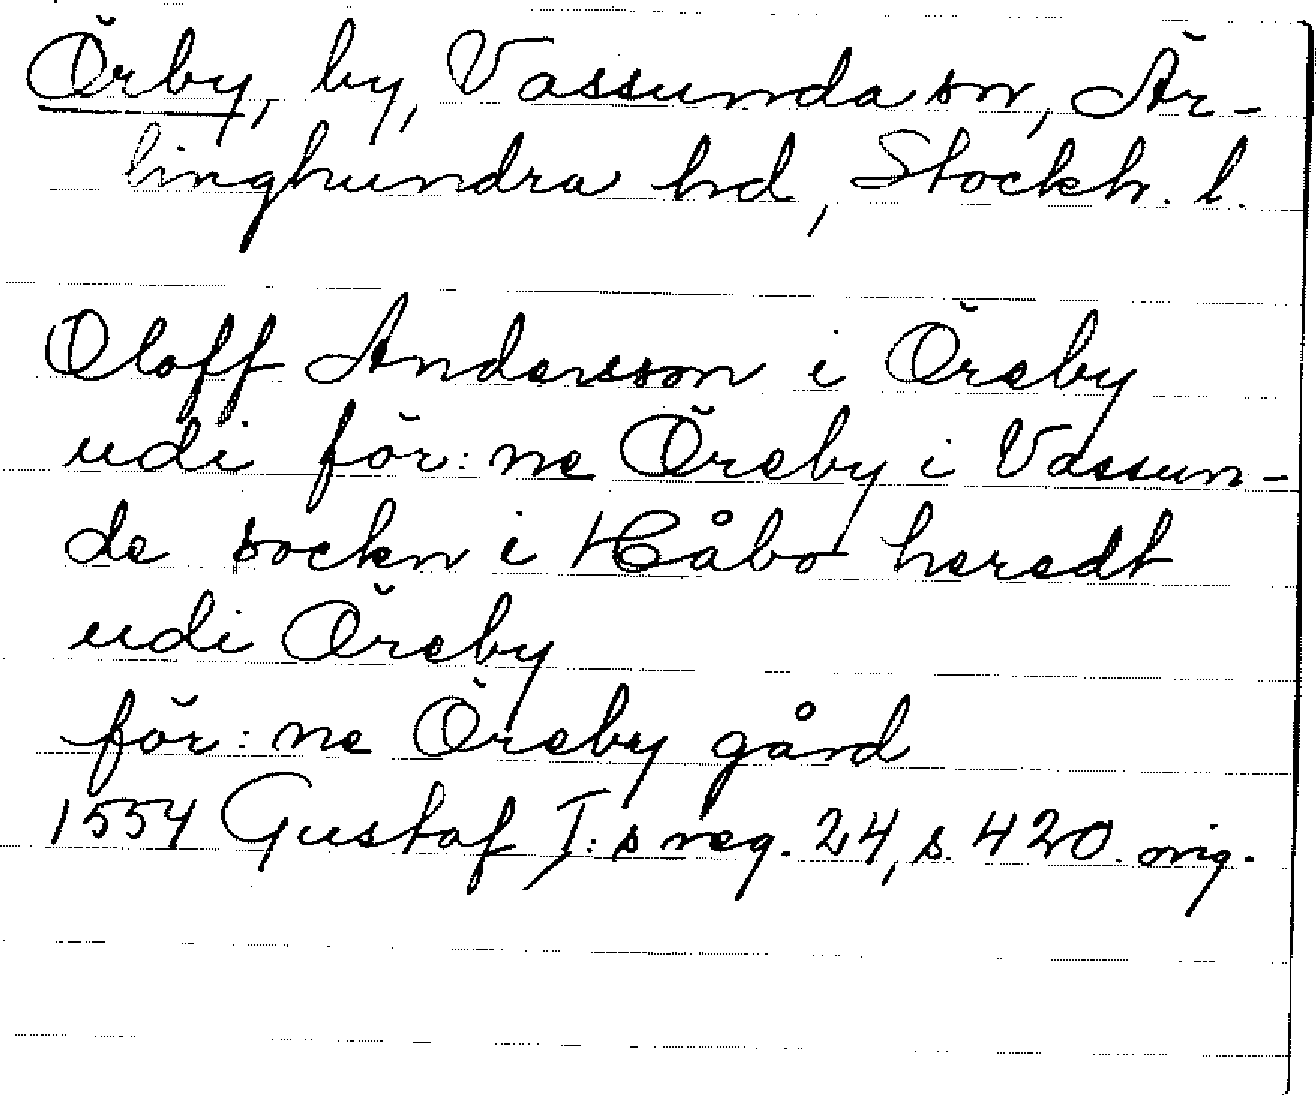 Örby, by, Vassunda sn, Är-
linghundra hd, Stockh. l.
Oloff Andersson i Öreby
udi för:ne Öreby i Vassun-
de sockn i Håbo heredt
udi Öreby
för:ne Öreby gård
1554 Gustaf I:s reg. 24, s. 420. orig.